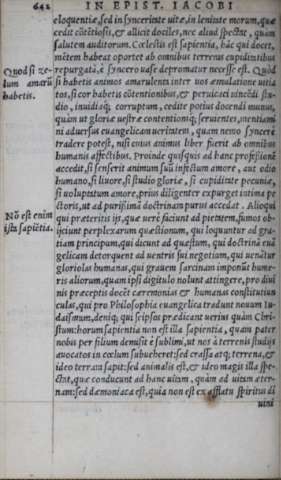 642 IN EPIST. IACOBI
eloquentiæ, sed in synceritate uitæ, in lenitate morum, quæ
cedit cōtētiosis, & allicit dociles, nec aliud spectat, quàm
salutem auditorum. Cœlestis est sapientia, hāc qui docet,
mētem habeat oportet ab omnibus terrenis cupiditatibus
repurgatā, è syncero uase depromatur necesse est. Quòd
Quòd si ze-
lum amarū
habetis.
si habetis animos amarulentos inter uos æmulatione uitia
tos, si cor habetis cōtentionibus, & peruicaci uincēdi stu-
dio, inuidiaq; corruptum, cedite potius docendi munus,
quàm ut gloriæ uestræ contentioniq; seruientes, mentiami
ni aduersus euangelicam ueritatem, quam nemo syncerè
tradere potest, nisi cuius animus liber fuerit ab omnibus
humanis affectibus. Proinde quisquis ad hanc professionē
accedit, si senserit animum suū infectum amore, aut odio
humano, si liuore, si studio gloriæ, si cupiditate pecuniæ,
si uoluptatum amore, prius diligenter expurget intima pe
ctoris, ut ad purissimā doctrinam purus accedat. Alioqui
Nō est enim
ista sapiētia.
qui præteritis ijs, quæ uerè faciunt ad pietatem, fumos ob-
ijciunt perplexarum quæstionum, qui loquuntur ad gra-
tiam principum, qui dicunt ad quæstum, qui doctrinā euā
gelicam detorquent ad uentris sui negotium, qui uenātur
gloriolas humanas, qui grauem sarcinam imponūt hume-
ris aliorum, quam ipsi digitulo nolunt attingere, pro diui
nis præceptis docēt cæremonias, & humanas constitutiun
culas, qui pro Philosophia euangelica tradunt nouum Iu-
daismum, deniq; qui seipsos prædicant uerius quàm Chri-
stum: horum sapientia non est illa sapientia, quam pater
nobis per filium demisit è sublimi, ut nos à terrenis studijs
auocatos in cœlum subueheret: sed crassa atq; terrena, &
ideo terram sapit: sed animalis est, & ideo magis illa spe-
ctat, quæ conducunt ad hanc uitam, quàm ad uitam æter-
nam: sed dæmoniaca est, quia non est ex afflatu spiritus di
uini